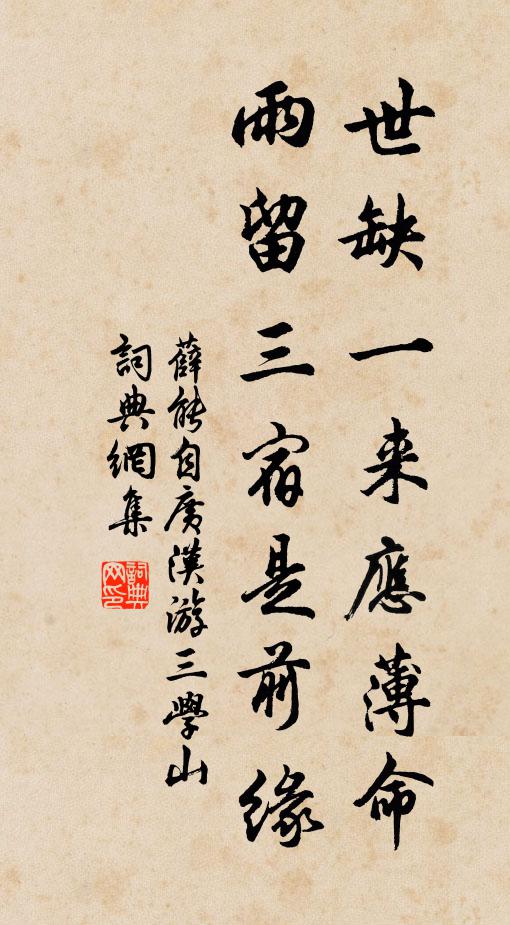 世缺一来應薄命
雨留三宿是前緣
薛能自廣漢游三學山
詞典網集
詞典网印